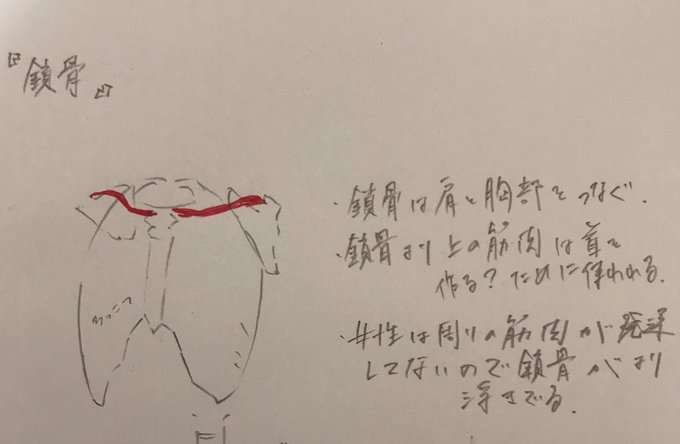 『鎖骨』
・鎖骨は肩と胸部をつなぐ.
・鎖骨より上の筋肉は首を
作る?ために使われる.
ろっこつ
・女性は周りの筋肉が発達
してないので鎖骨がより
浮きでる.